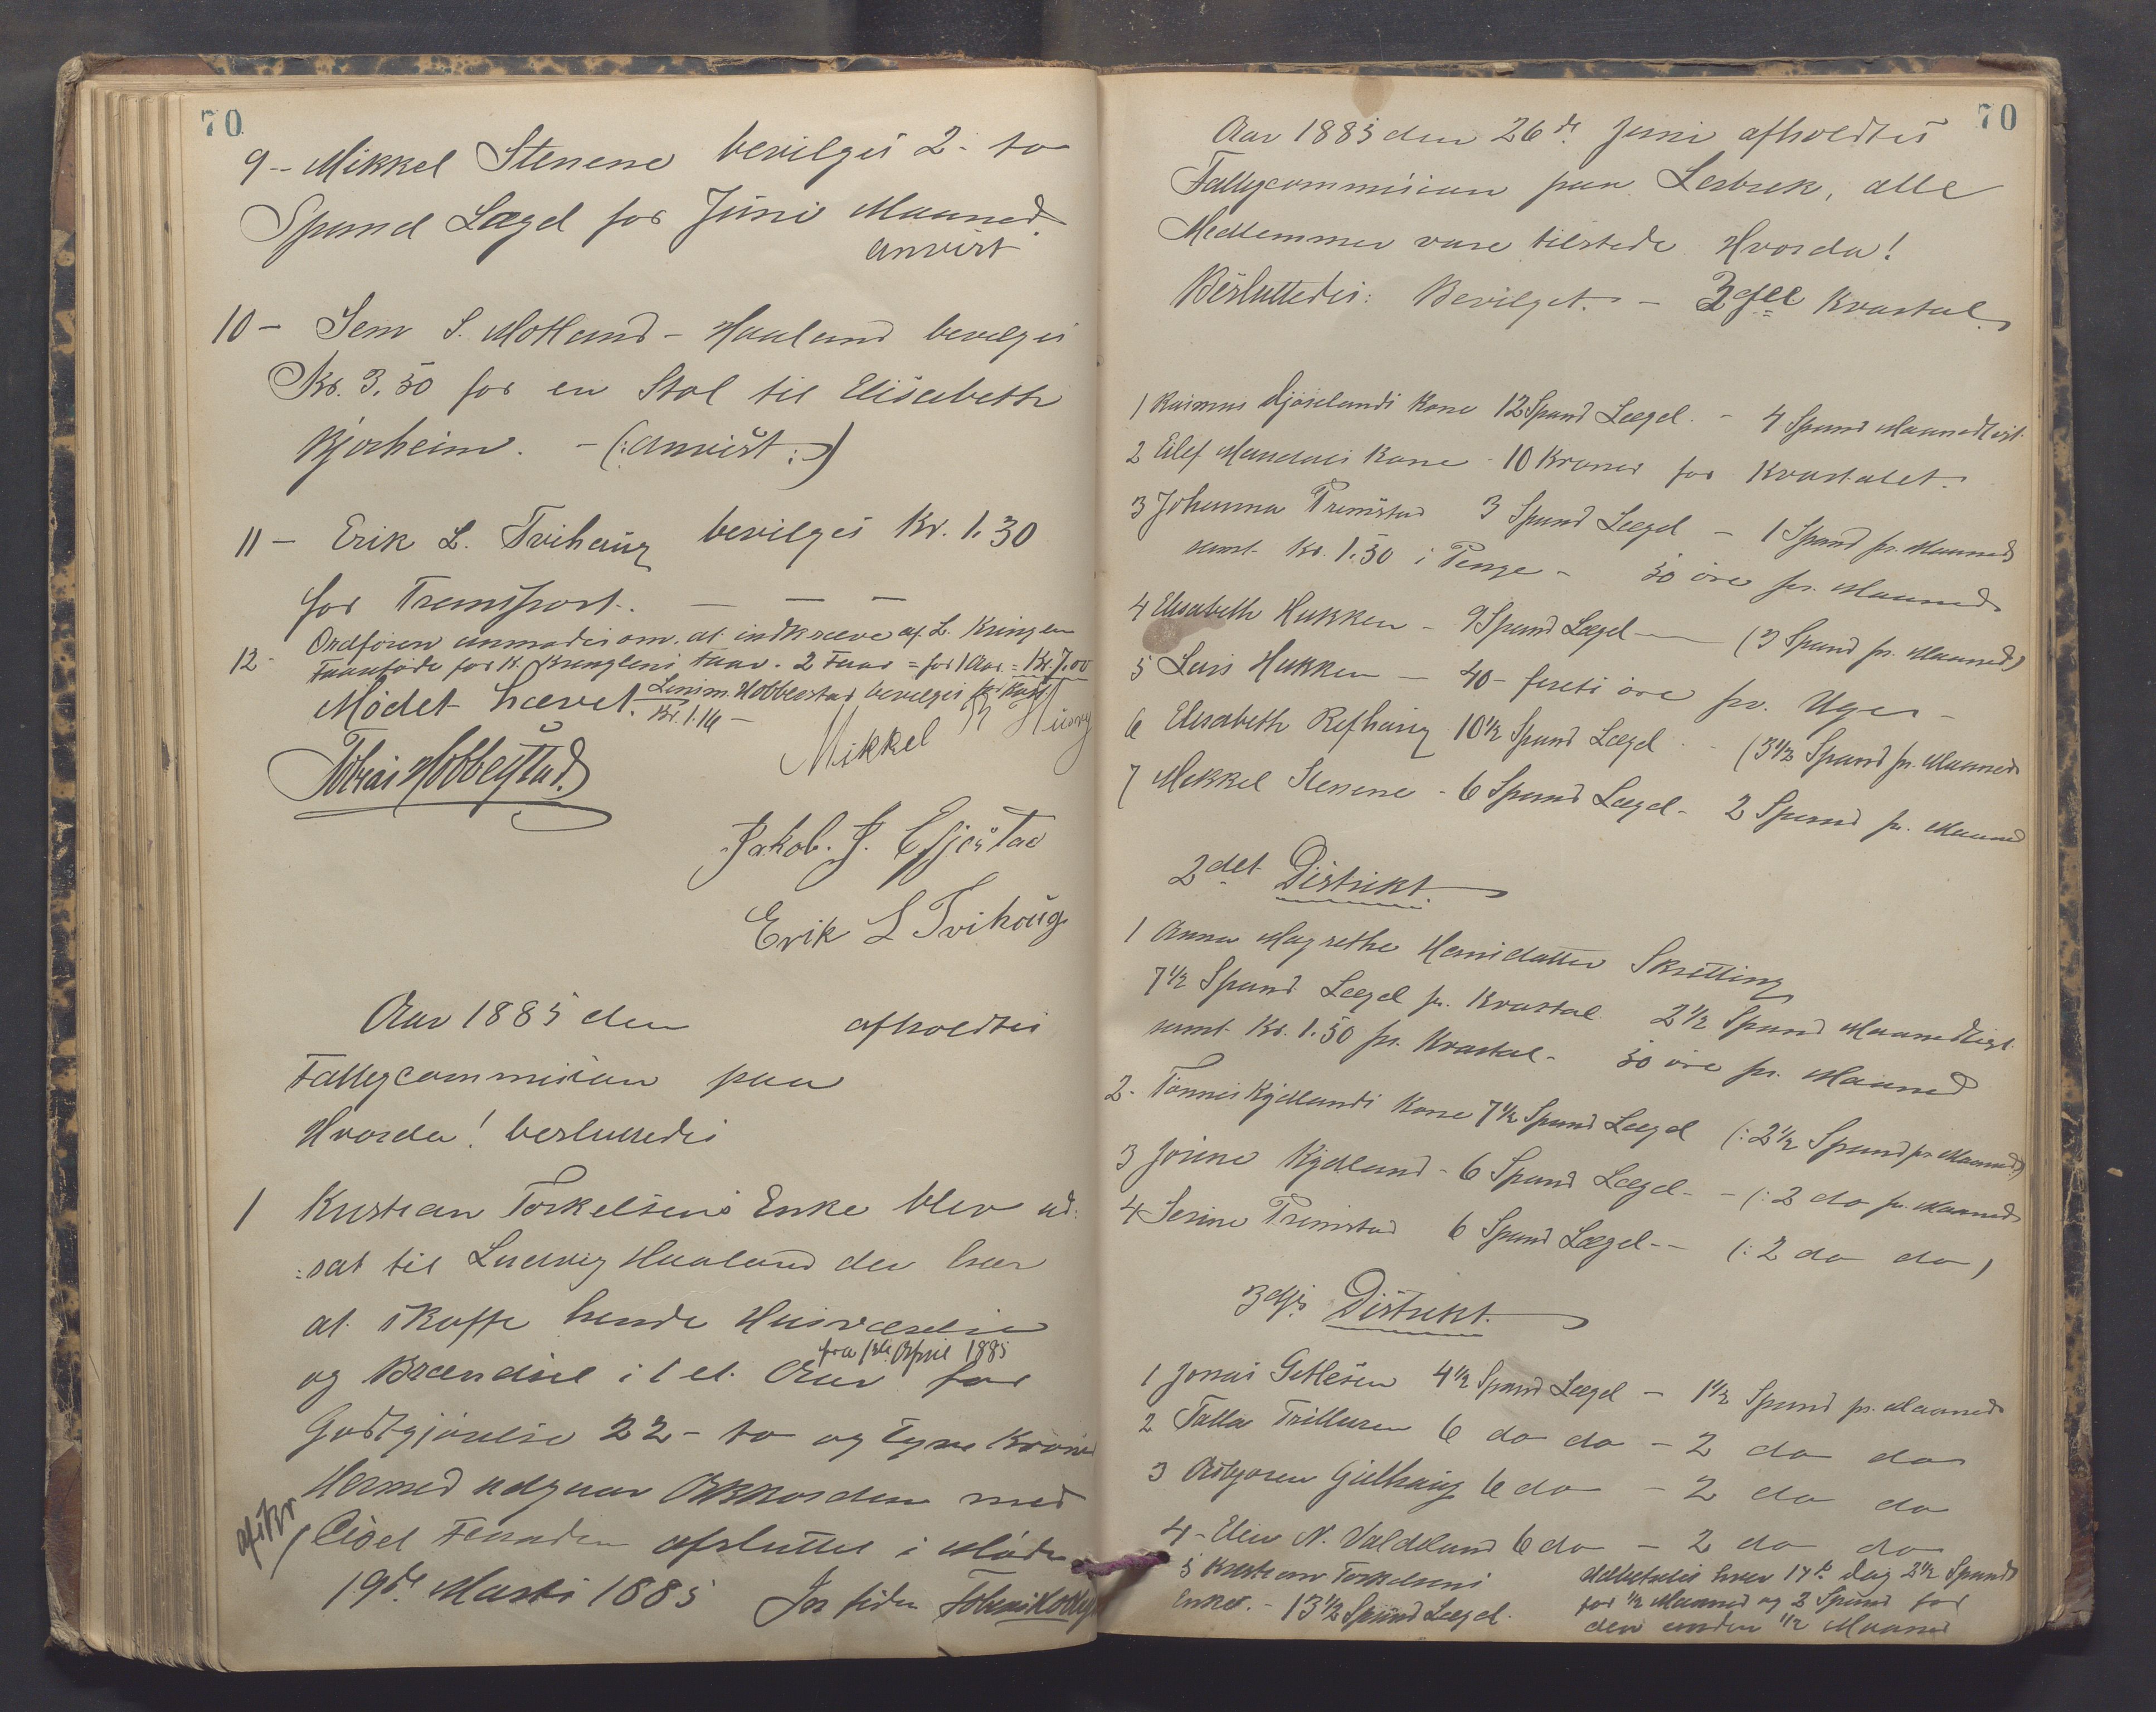 70
9 - Mikkel Stenene bevilges 2 - to
Spand Lægd for Juni Maaned.
anvist
10 - Sem S. Motland - Haaland bevilges
Kr. 3,50 for en Stol til Elisabeth
Bjorheim. - (: anvist :)
11 - Erik L. Tvihaug bevilges Kr. 1.30
for Transport. — — —
12 - Ordføren anmodes om at indkræve af L.
for K. Kringlens Faar. 2 Faar = for 1 Aar = Kr. 7.00
Mødet hævet. Hobberstad bevilges
Kr. 1.16 -
Mikkel
Tobias Hobberstad.
Jakob. J. Espjestad
Erik L Tvihoug
Aar 1885 den afholdtes
Fattigcommission paa
Hvorda! besluttedes
1 Kristian Torkelsens Enke blev ud:
:sat til Ludvig Haaland der har
at skaffe hende Huusværelse
fra 1ste April 1885
og Brændsel i 1 et Aar for
Godtgjørelse 22 - to og tyve Kroner
Hermed udgaar Akkorden med
Eied Fennaden afsluttet i Møde
19de Marts 1885
70
Aar 1885 den 26de Juni afholdtes
Fattigcommission paa Lerbrek, alle
Medlemmer vare tilstede Hvorda!
Besluttedes: Bevilget. - 3dje Kvartal.
1 Rasmus Kone 12 Spand Lægd. - 4 Spand Maanedligt.
2 Eilef Mandals Kone - 10 Kroner for Kvartalet.
3 Johanna Primstad 3 Spand Lægd - 1 Spand pr. Maaned
samt Kr. 1.50 i Penge - 50 øre pr. Maaned
4 Elisabeth Hukken - 9 Spand Lægd — (3 Spand pr. Maaned)
5 Lars Hukken - 40 - fireti øre pr. Uge -
6 Elisabeth Refhaug 10 1/2 Spand Lægd - (3 1/2 Spand pr. Maaned
7 Mikkel Stenene - 6 Spand Lægd - 2 Spand pr. Maaned
2det Distrikt
1 Anna Magrethe Hansdatter Skretting
7 1/2 Spand Lægd pr. Kvartal 2 1/2 Spand Maanedligt.
samt Kr. 1.50 pr. Kvartal - 50 øre pr. Maaned
2. Tønnes Kydlands Kone 7 1/2 Spand Lægd (: 2 1/2 Spand pr. Maaned)
3 Jorine Kydland - 6 Spand Lægd - - (: 2 do pr. Maaned
4 Serine Primstad 6 Spand Lægd - - (: 2 do do)
3dje Distrikt.
1 Jonas Getlesen 4 1/2 Spand Lægd - 1 1/2 Spand pr. Maaned
2 Talla 6 do do - 2 do do
3 6 do - 2 do do
4 - Elen N. Valdeland 6 do - 2 do do
5 Kristian Torkelsens
Enke. - 13 1/2 Spand Lægd.
Udbetales hver 14de Dag 2 1/2 Spand
for 1/2 Maaned og 2 Spand for
den anden 1/2 Maaned